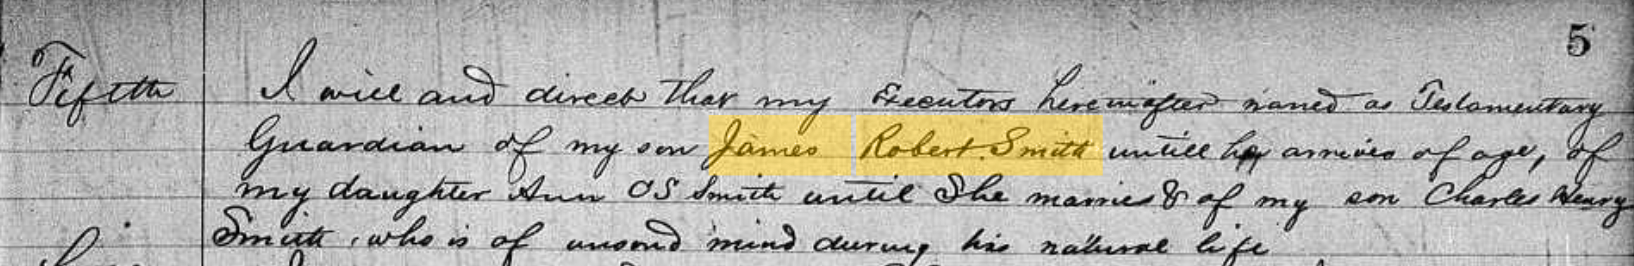 5
Fifth I will and direct that my Executors hereinafter named as Testamentary
Guardian of my son James Robert Smith untill he arrives of age, of
my daughter Ann O S Smith until She marries & of my son Charles Henry
Smith, who is of unsond mind during his natural life